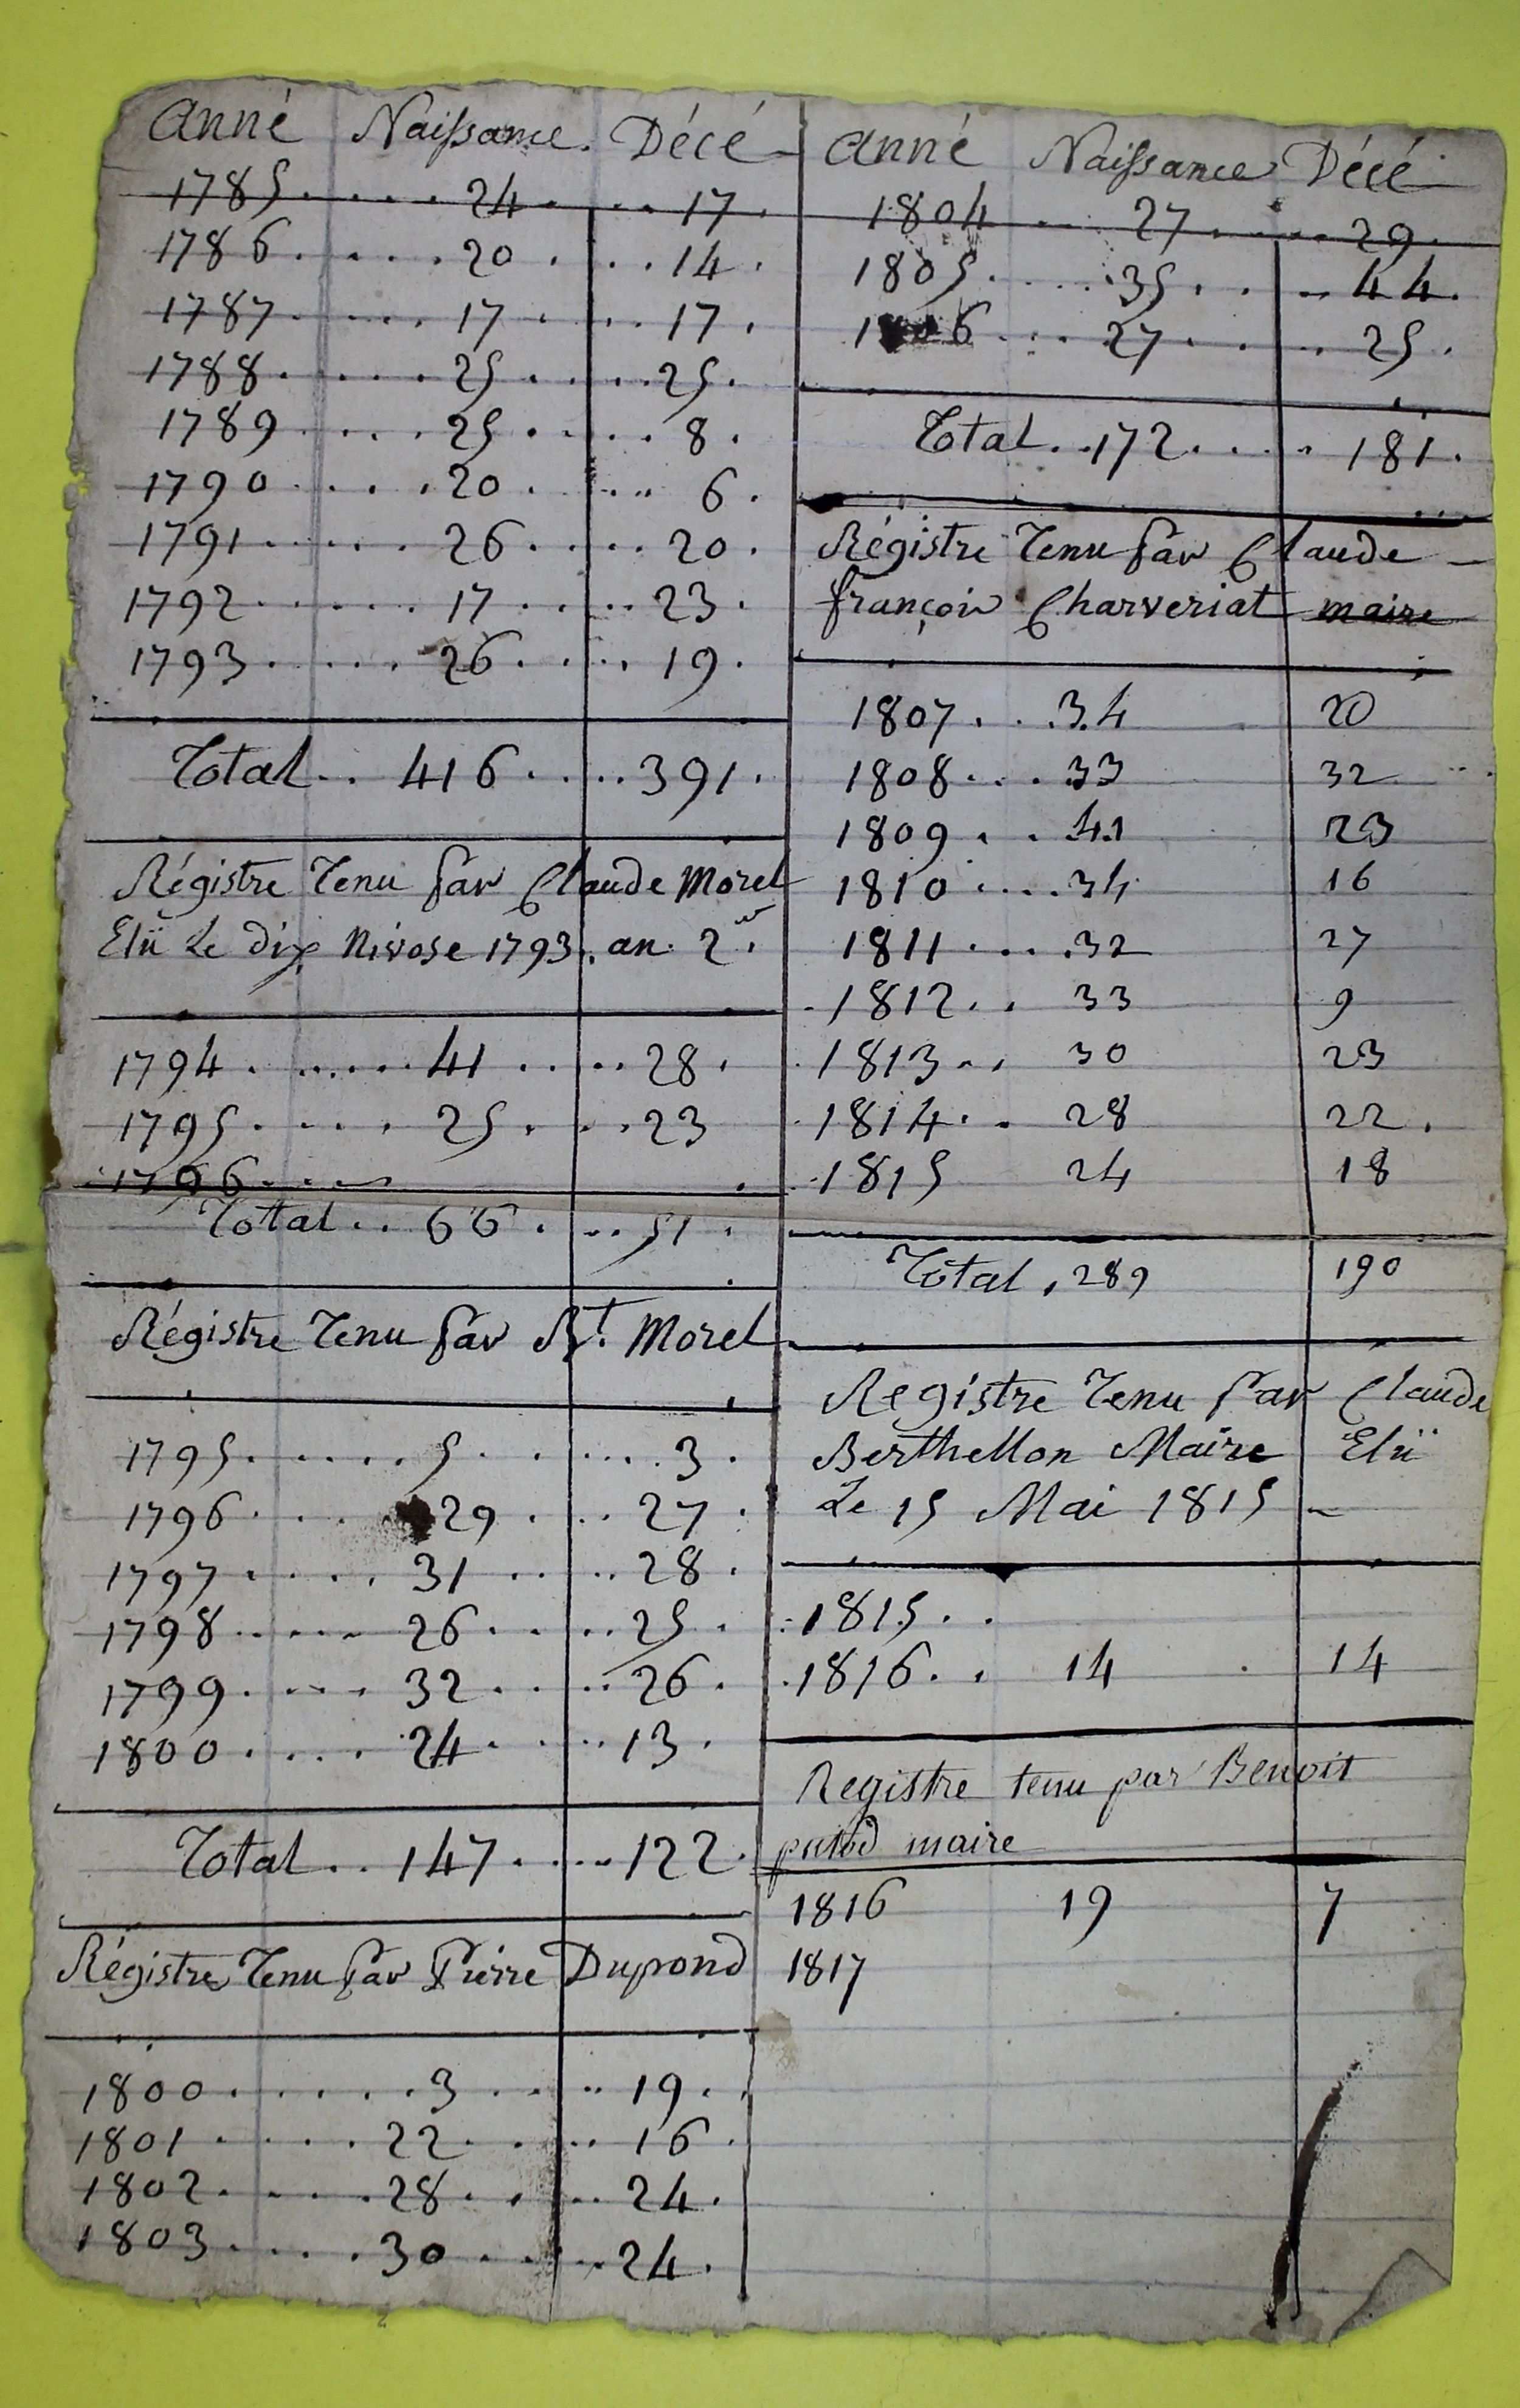 Anné Naissance Décé
1785 24 17
1786 20 14
1787 17 17
1788 25 25
1789 25 8
1790 20 6
1791 26 20
1792 17 23
1793 26 19
Total 416 391
Régistre Tenu Par Claude Morel
Elü Le dix Nivose 1793. an 2
1794 41 28
1795 25 23
1796
Total 66 51
Régistre Tenu Par Bt. Morel
1795 5 3
1796 29 27
1797 31 28
1798 26 25
1799 32 26
1800 24 13
Total 147 122
Régistre Tenu Par Pierre Dupond
1800 3 19
1801 22 16
1802 28 24
1803 30 24
Anné Naissance Décé
1804 27 29
1805 35 44
1806 27 25
Total 172 181
Régistre Tenu Par Claude
françois Charveriat maire
1807 34 20
1808 33 32
1809 41 23
1810 34 16
1811 32 27
1812 33 9
1813 30 23
1814 28 22
1815 24 18
Total 289 190
Registre Tenu Par Claude
Berthellon Maire Elü
Le 15 Mai 1815
1815
1816 14 14
Registre tenu par Benoit
maire
1816 19 7
1817